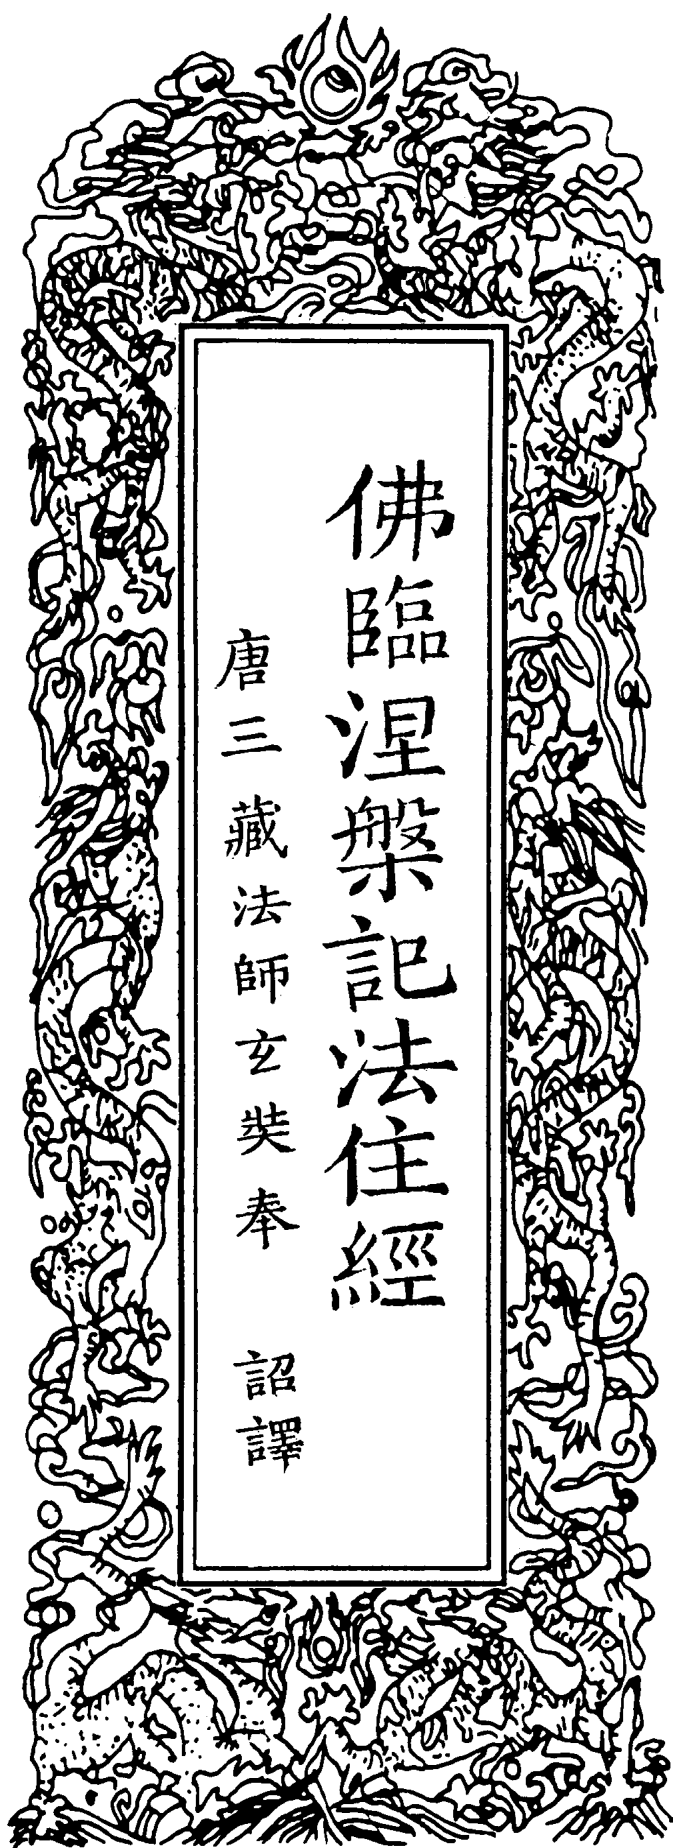 佛臨涅槃記法住經
唐三藏法師玄奘奉　詔譯